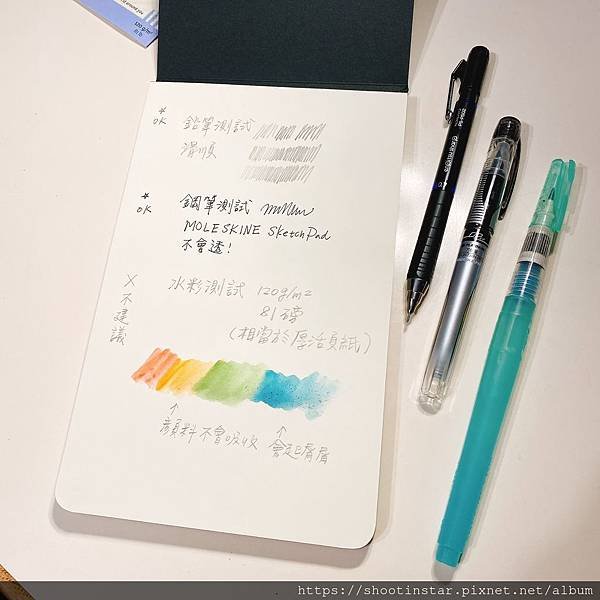 120 g/m²
*
OK
鉛筆測試
滑順
*
OK
鋼筆測試
MOLESKINE Sketch Pad
不會透！
X不建議
水彩測試 120g/m2
81磅
(相當於厚活頁紙)
↑
顏料不會吸收
↑
會起屑屑
https://shootinstar.pixnet.net/album